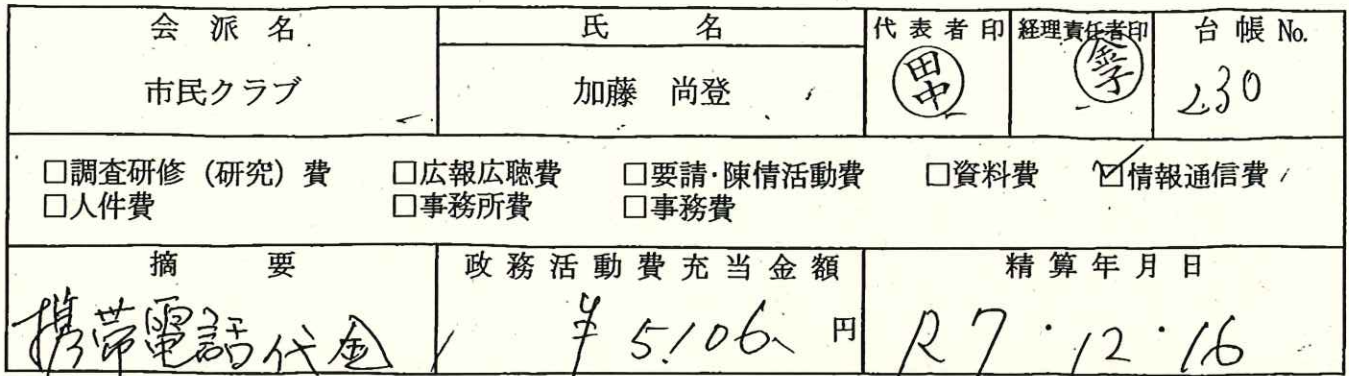 会派名 氏名 代表者印 経理責任者印 台帳No.
市民クラブ 加藤 尚登 田中 金子 230
□調査研修（研究）費 □広報広聴費 □要請・陳情活動費 □資料費 ☑情報通信費
□人件費 □事務所費 □事務費
摘要 政務活動費充当金額 精算年月日
携帯電話代金 ¥5,106 円 R7・12・16